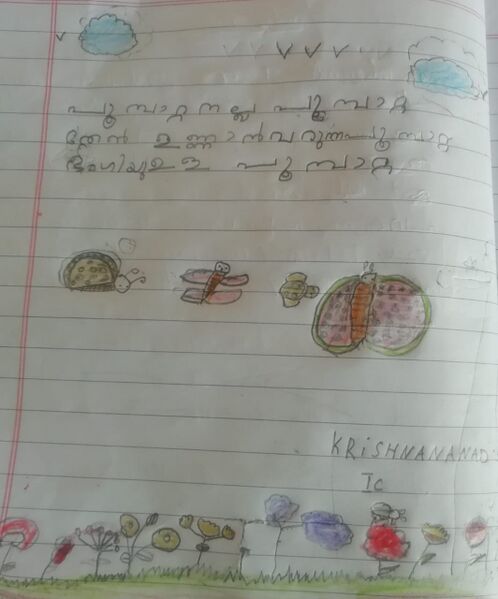 പൂമ്പാറ്റ നല്ല പൂമ്പാറ്റ
തേൻ ഉണ്ണാൻ വരുന്ന പൂമ്പാറ്റ
ഭംഗിയുള്ള പൂമ്പാറ്റ
KRiSHNANANAD
Ic